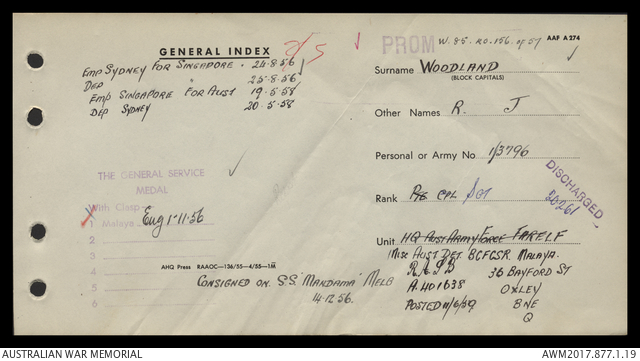 GENERAL INDEX
2/5
Emp SYDNEY FOR SINGAPORE . 24.8.56
DEP " 25.8.56
Emp SINGAPORE FOR AUST 19.5.58
DEP SYDNEY 20.5.58
THE GENERAL SERVICE
MEDAL
With Clasp
1 Malaya Eng 1-11-56
2
3
4
5
6
AHQ Press RAAOC—136/55—4/55—1M
CONSIGNED ON S.S. "MANDAMA" MELB
14.12.56.
PROM W.85. RO.156. of 57
AAF A 274
Surname WOODLAND
(BLOCK CAPITALS)
Other Names R. J
Personal or Army No 1/3796
Rank Pte CPL SGT
DISCHARGED
20261
Unit HQ AUST ARMY FORCE FARELF
MISC AUST DET BCFGSR MALAYA.
R.A.S.B 36 BAYFORD ST
A.401638 OXLEY
POSTED 11/6/59. BNE
Q
AUSTRALIAN WAR MEMORIAL
AWM2017.877.1.19